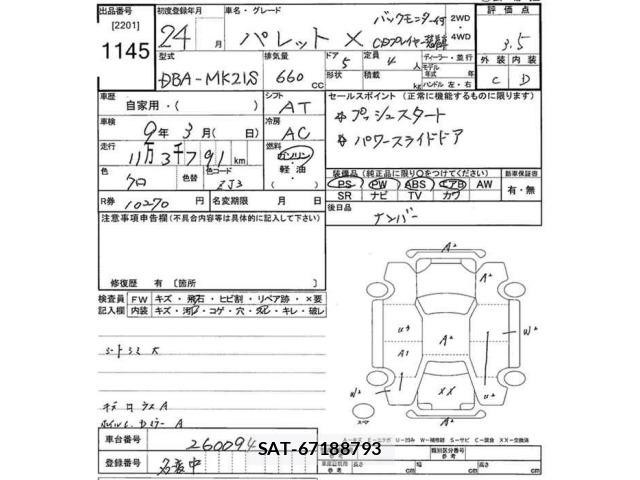 出品番号 初度登録年月 車名・グレード 評価点
[2201]
1145 24 月 パレット X バックモニター付 2WD・4WD 3.5
CDプレイヤー
型式 排気量 ドア 5 定員 4 人 ディーラー・並行 外装 内装
DBA-MK21S 660 CC 形状 積載 kg モデル年式 年 ハンドル 左・右 C D
車歴 自家用・( ) シフト AT セールスポイント (正常に機能するものに限ります)
車検 9年 3月( 日) 冷房 AC プッシュスタート
走行 11万3千791 km 燃料 ガソリン 軽油 ・( ) パワースライドドア
色 クロ 色替 色コード ZJ3 装備品(純正品に限り○をつけてください) 新車保証書
PS PW ABS エアB AW 有・無
SR ナビ TV カワ
R券 10270 円 名変期限 月 日 後日品 ナンバー
注意事項申告欄(不具合内容等は具体的に記入して下さい)
修復歴 有 [箇所
検査員記入欄 FW キズ・飛石・ヒビ割・リペア跡・×要
内装 キズ・汚れ・コゲ・穴・スレ・キレ・破レ
A2
A2
U3 A2 W2
A1
W2 XX U2
A2
シートシミ大
A
A
車台番号 260094
登録番号 名変中
SAT-67188793
A-キズ E-エクボ U-凹み W-補修跡 S-サビ C-腐食 XX-交換済
参考 長さ cm 幅 cm 高さ cm